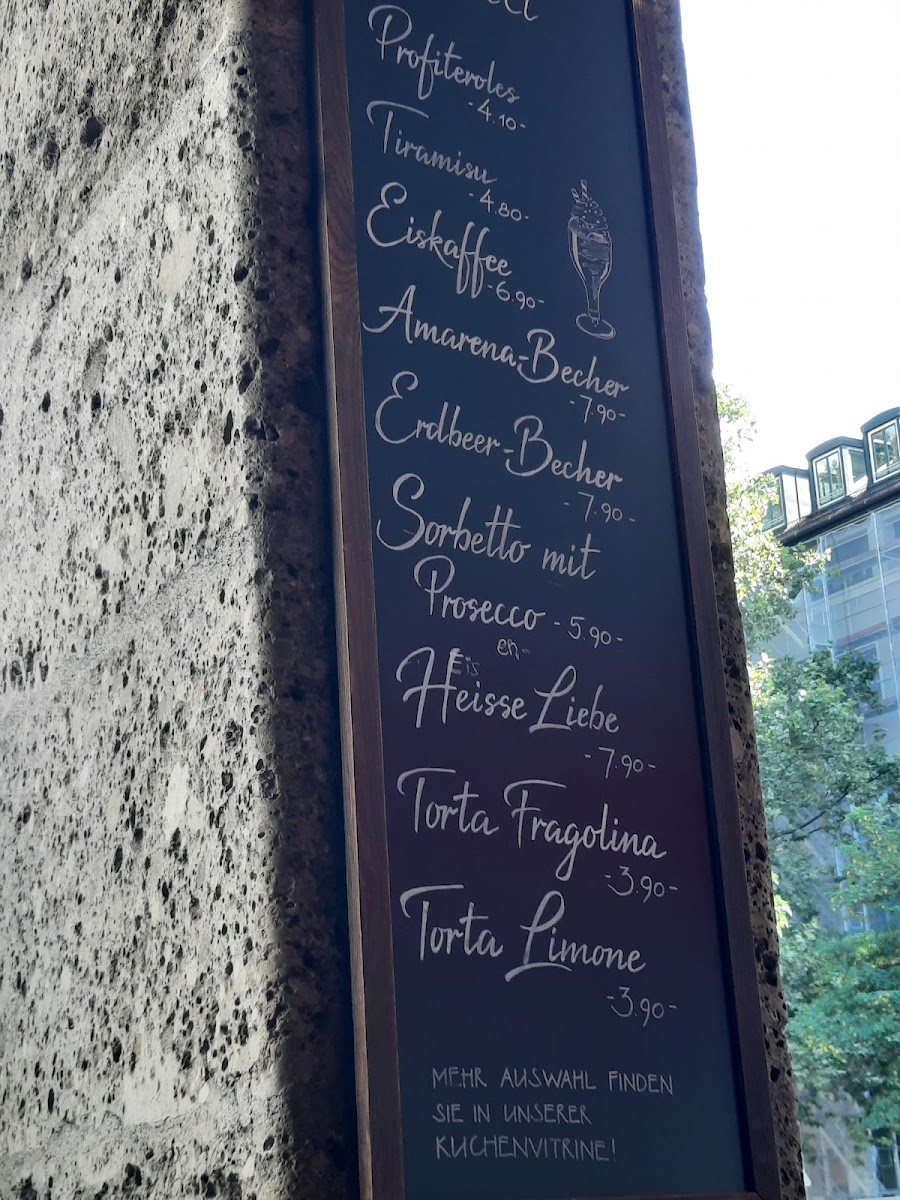 Profiteroles
- 4.10 -
Tiramisu
- 4.80 -
Eiskaffee
- 6.90 -
Amarena-Becher
- 7.90 -
Erdbeer-Becher
- 7.90 -
Sorbetto mit
Prosecco - 5.90 -
Eis
Heisse Liebe
- 7.90 -
Torta Fragolina
- 3.90 -
Torta Limone
- 3.90 -
MEHR AUSWAHL FINDEN
SIE IN UNSERER
KUCHENVITRINE!